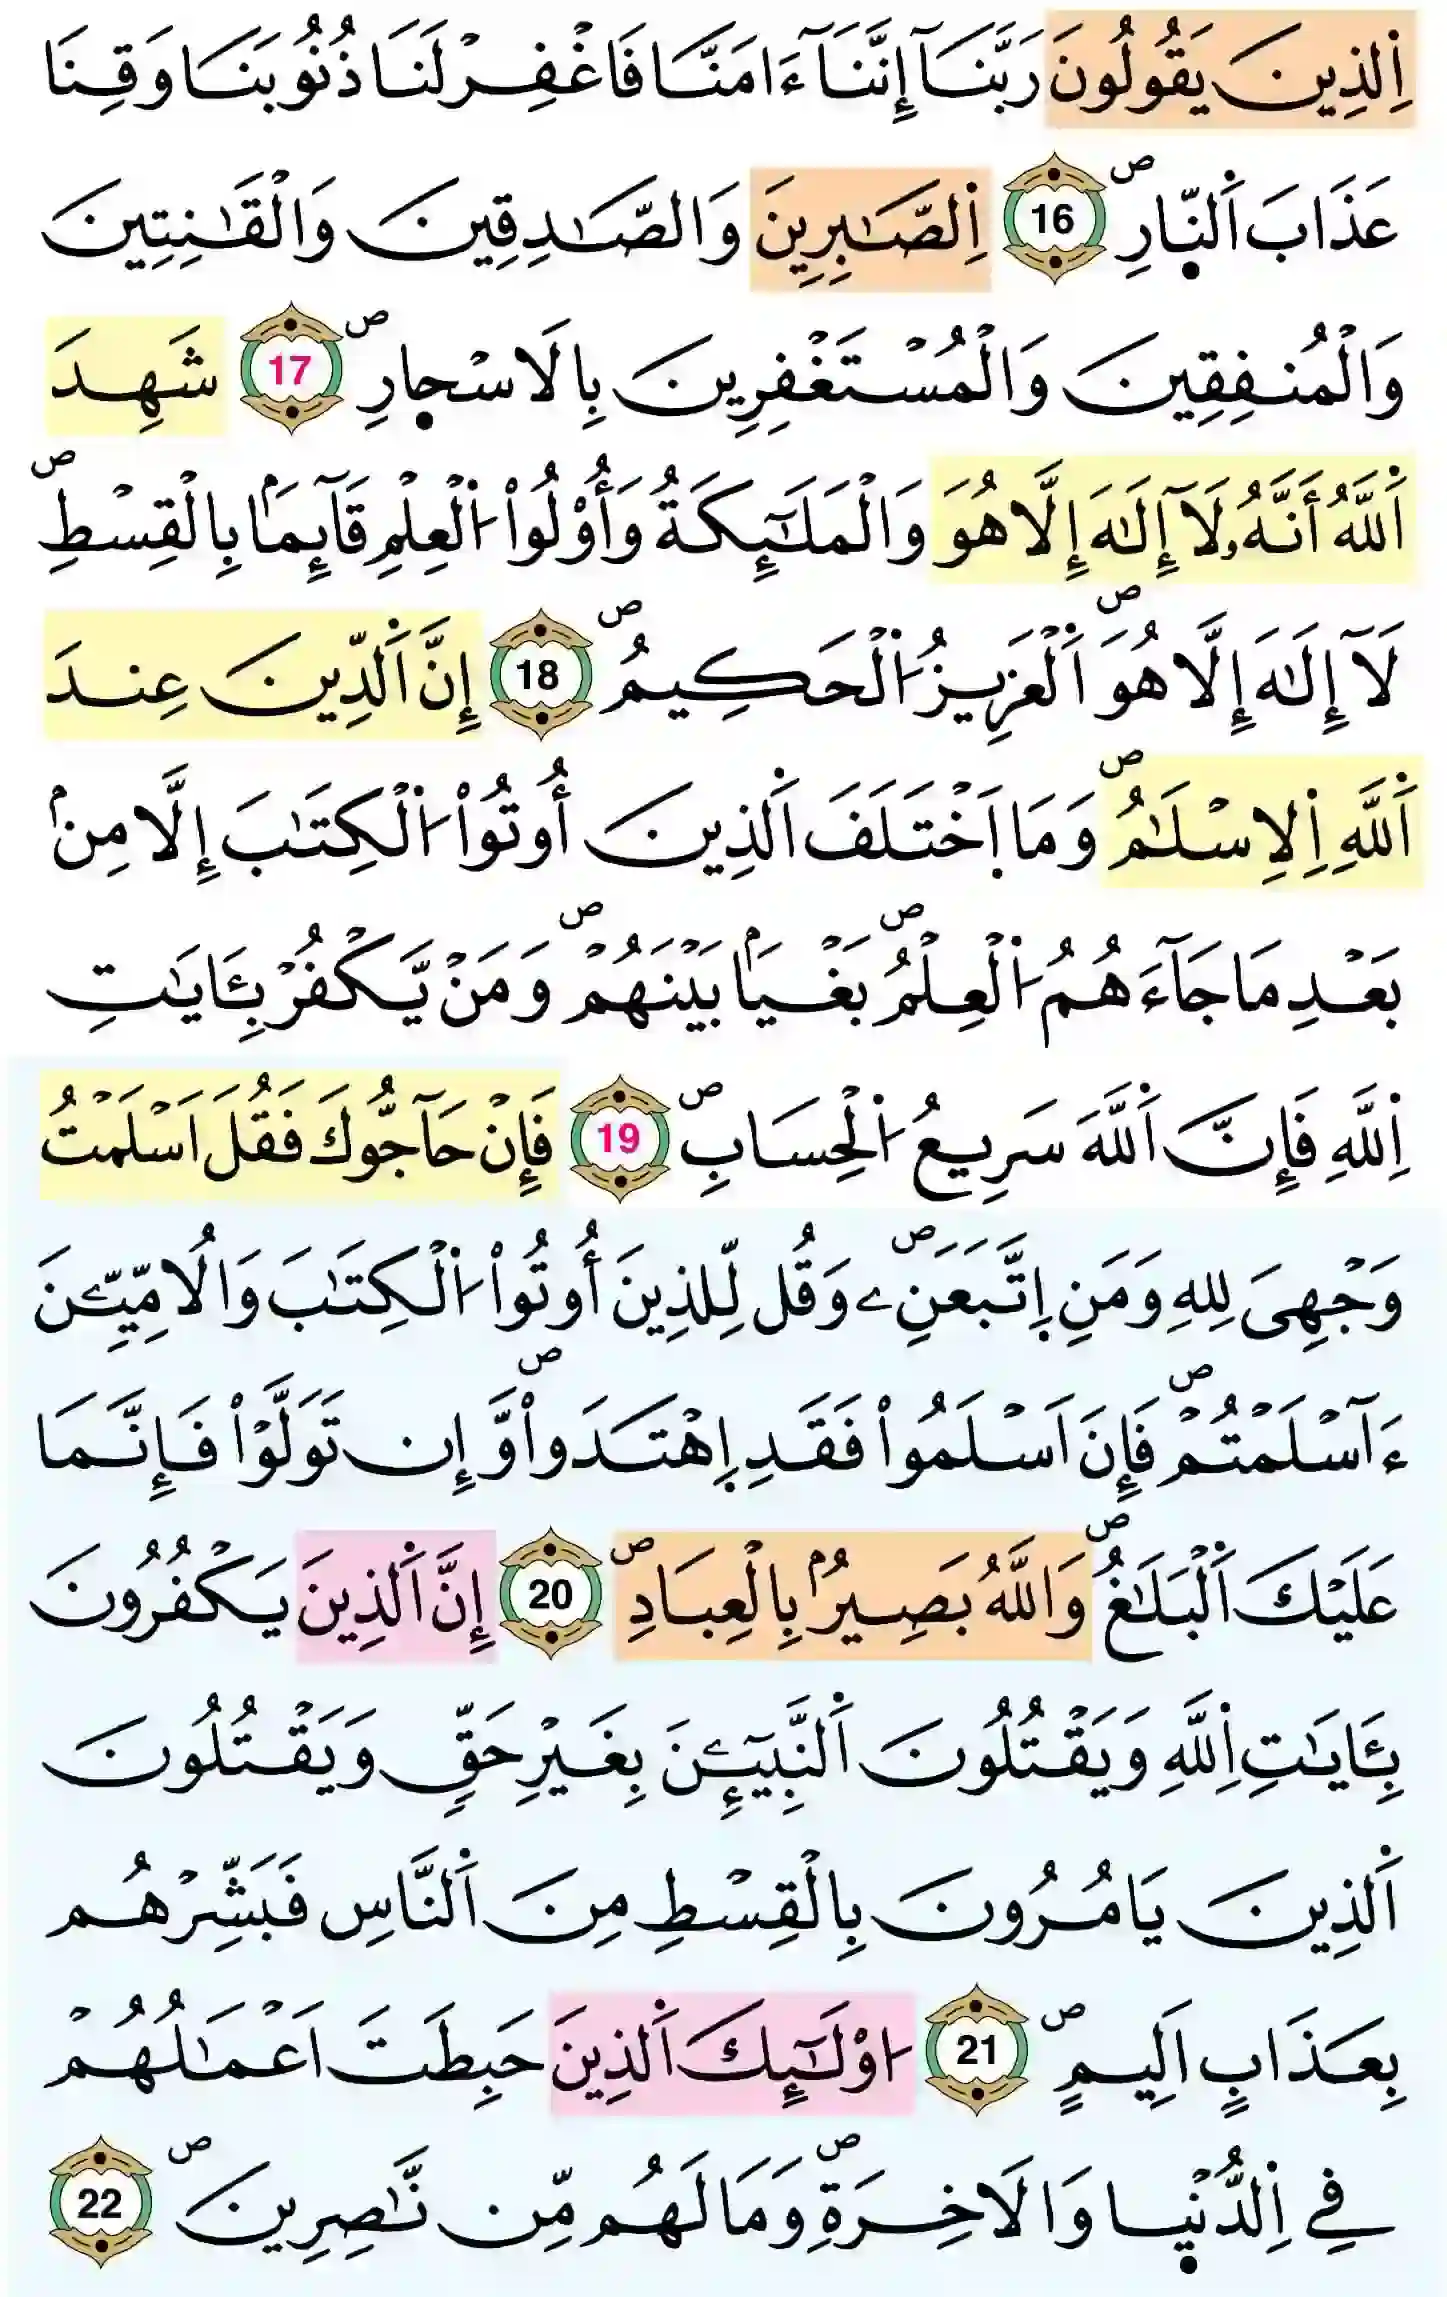 اِ۬لذِينَ يَقُولُونَ رَبَّنَآ إِنَّنَآ ءَامَنَّا فَاغْفِرْ لَنَا ذُنُوبَنَا وَقِنَا
عَذَابَ اَ۬لنّ۪ارِۖ 16 اِ۬لصَّٰبِرِينَ وَالصَّٰدِقِينَ وَالْقَٰنِتِينَ
وَالْمُنفِقِينَ وَالْمُسْتَغْفِرِينَ بِالَاسْح۪ارِۖ 17 شَهِدَ
اَ۬للَّهُ أَنَّهُۥ لَآ إِلَٰهَ إِلَّا هُوَ وَالْمَلَٰٓئِكَةُ وَأُوْلُواْ اُ۬لْعِلْمِ قَآئِماَۢ بِالْقِسْطِۖ
لَآ إِلَٰهَ إِلَّا هُوَۖ اَ۬لْعَزِيزُ اُ۬لْحَكِيمُۖ 18 إِنَّ اَ۬لدِّينَ عِندَ
اَ۬للَّهِ اِ۬لِاسْلَٰمُۖ وَمَا اَ۪خْتَلَفَ اَ۬لذِينَ أُوتُواْ اُ۬لْكِتَٰبَ إِلَّا مِنۢ
بَعْدِ مَا جَآءَهُمُ اُ۬لْعِلْمُۖ بَغْياَۢ بَيْنَهُمْۖ وَمَنْ يَّكْفُرْ بِـَٔايَٰتِ
اِ۬للَّهِ فَإِنَّ اَ۬للَّهَ سَرِيعُ اُ۬لْحِسَابِۖ 19 فَإِنْ حَآجُّوكَ فَقُلَ اَسْلَمْتُ
وَجْهِىَ لِلهِ وَمَنِ اِ۪تَّبَعَنِۦۖ وَقُل لِّلذِينَ أُوتُواْ اُ۬لْكِتَٰبَ وَالُامِّيِّـۧنَ
ءَآسْلَمْتُمْۖ فَإِنَ اَسْلَمُواْ فَقَدِ اِ۪هْتَدَواْۖ وَّإِن تَوَلَّوْاْ فَإِنَّمَا
عَلَيْكَ اَ۬لْبَلَٰغُۖ وَاللَّهُ بَصِيرُۢ بِالْعِبَادِۖ 20 إِنَّ اَ۬لذِينَ يَكْفُرُونَ
بِـَٔايَٰتِ اِ۬للَّهِ وَيَقْتُلُونَ اَ۬لنَّبِيٓـِٕۧنَ بِغَيْرِ حَقٍّ وَيَقْتُلُونَ
اَ۬لذِينَ يَامُرُونَ بِالْقِسْطِ مِنَ اَ۬لنَّاسِ فَبَشِّرْهُم
بِعَذَابٍ اَلِيمٍۖ 21 اُوْلَٰٓئِكَ اَ۬لذِينَ حَبِطَتَ اَعْمَٰلُهُمْ
فِے اِ۬لدُّنْي۪ا وَالَاخِرَةِۖ وَمَا لَهُم مِّن نَّٰصِرِينَۖ 22